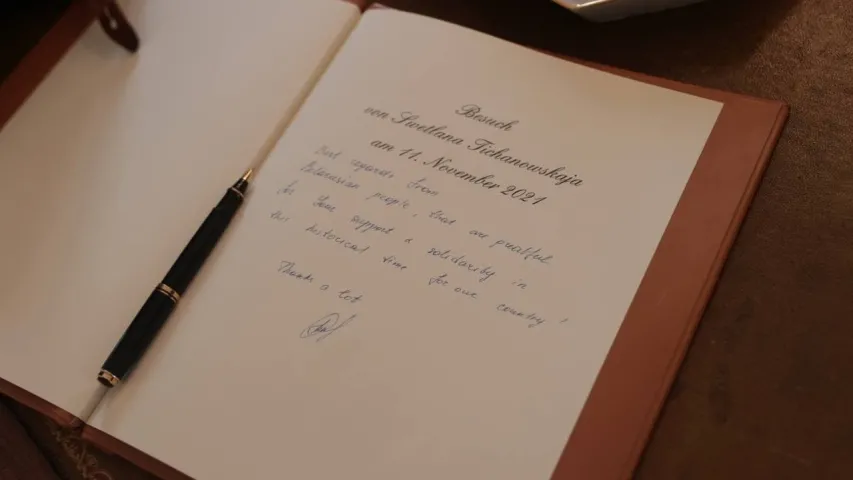 Besuch
von Swetlana Tichanowskaja
am 11. November 2021
Best regards from
Belarusian people, that are greatful
for Your support & solidarity in
this historical time for our country!
Thanks a lot